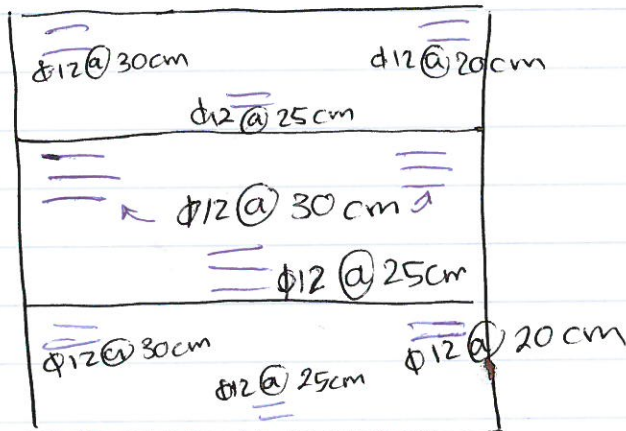 ϕ12@30cm
ϕ12@20cm
ϕ12@25cm
ϕ12@30cm
ϕ12@25cm
ϕ12@30cm
ϕ12@20cm
ϕ12@25cm